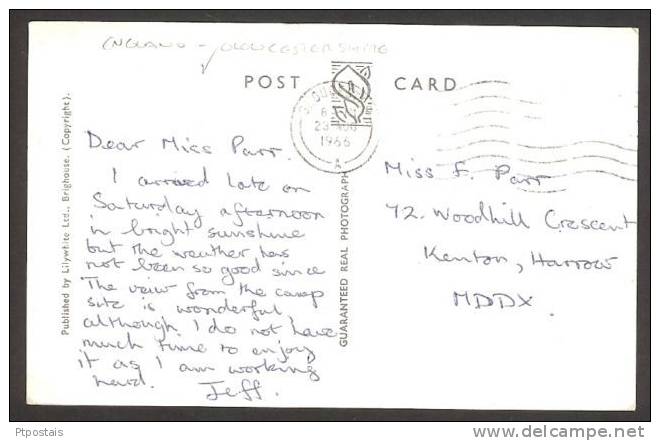 ENGLAND - GLOUCESTERSHIRE
POST CARD
23 AUG
1966
A
Published by Lilywhite Ltd., Brighouse. (Copyright).
GUARANTEED REAL PHOTOGRAPH
Dear Miss Parr.
I arrived late on
Saturday afternoon
in bright sunshine
but the weather has
not been so good since
The view from the camp
site is wonderful
although I do not have
much time to enjoy
it as I am working
hard. Jeff.
Miss F. Parr
72. Woodhill Crescent
Kenton, Harrow
MDDX.
Ptpostais
www.delcampe.net